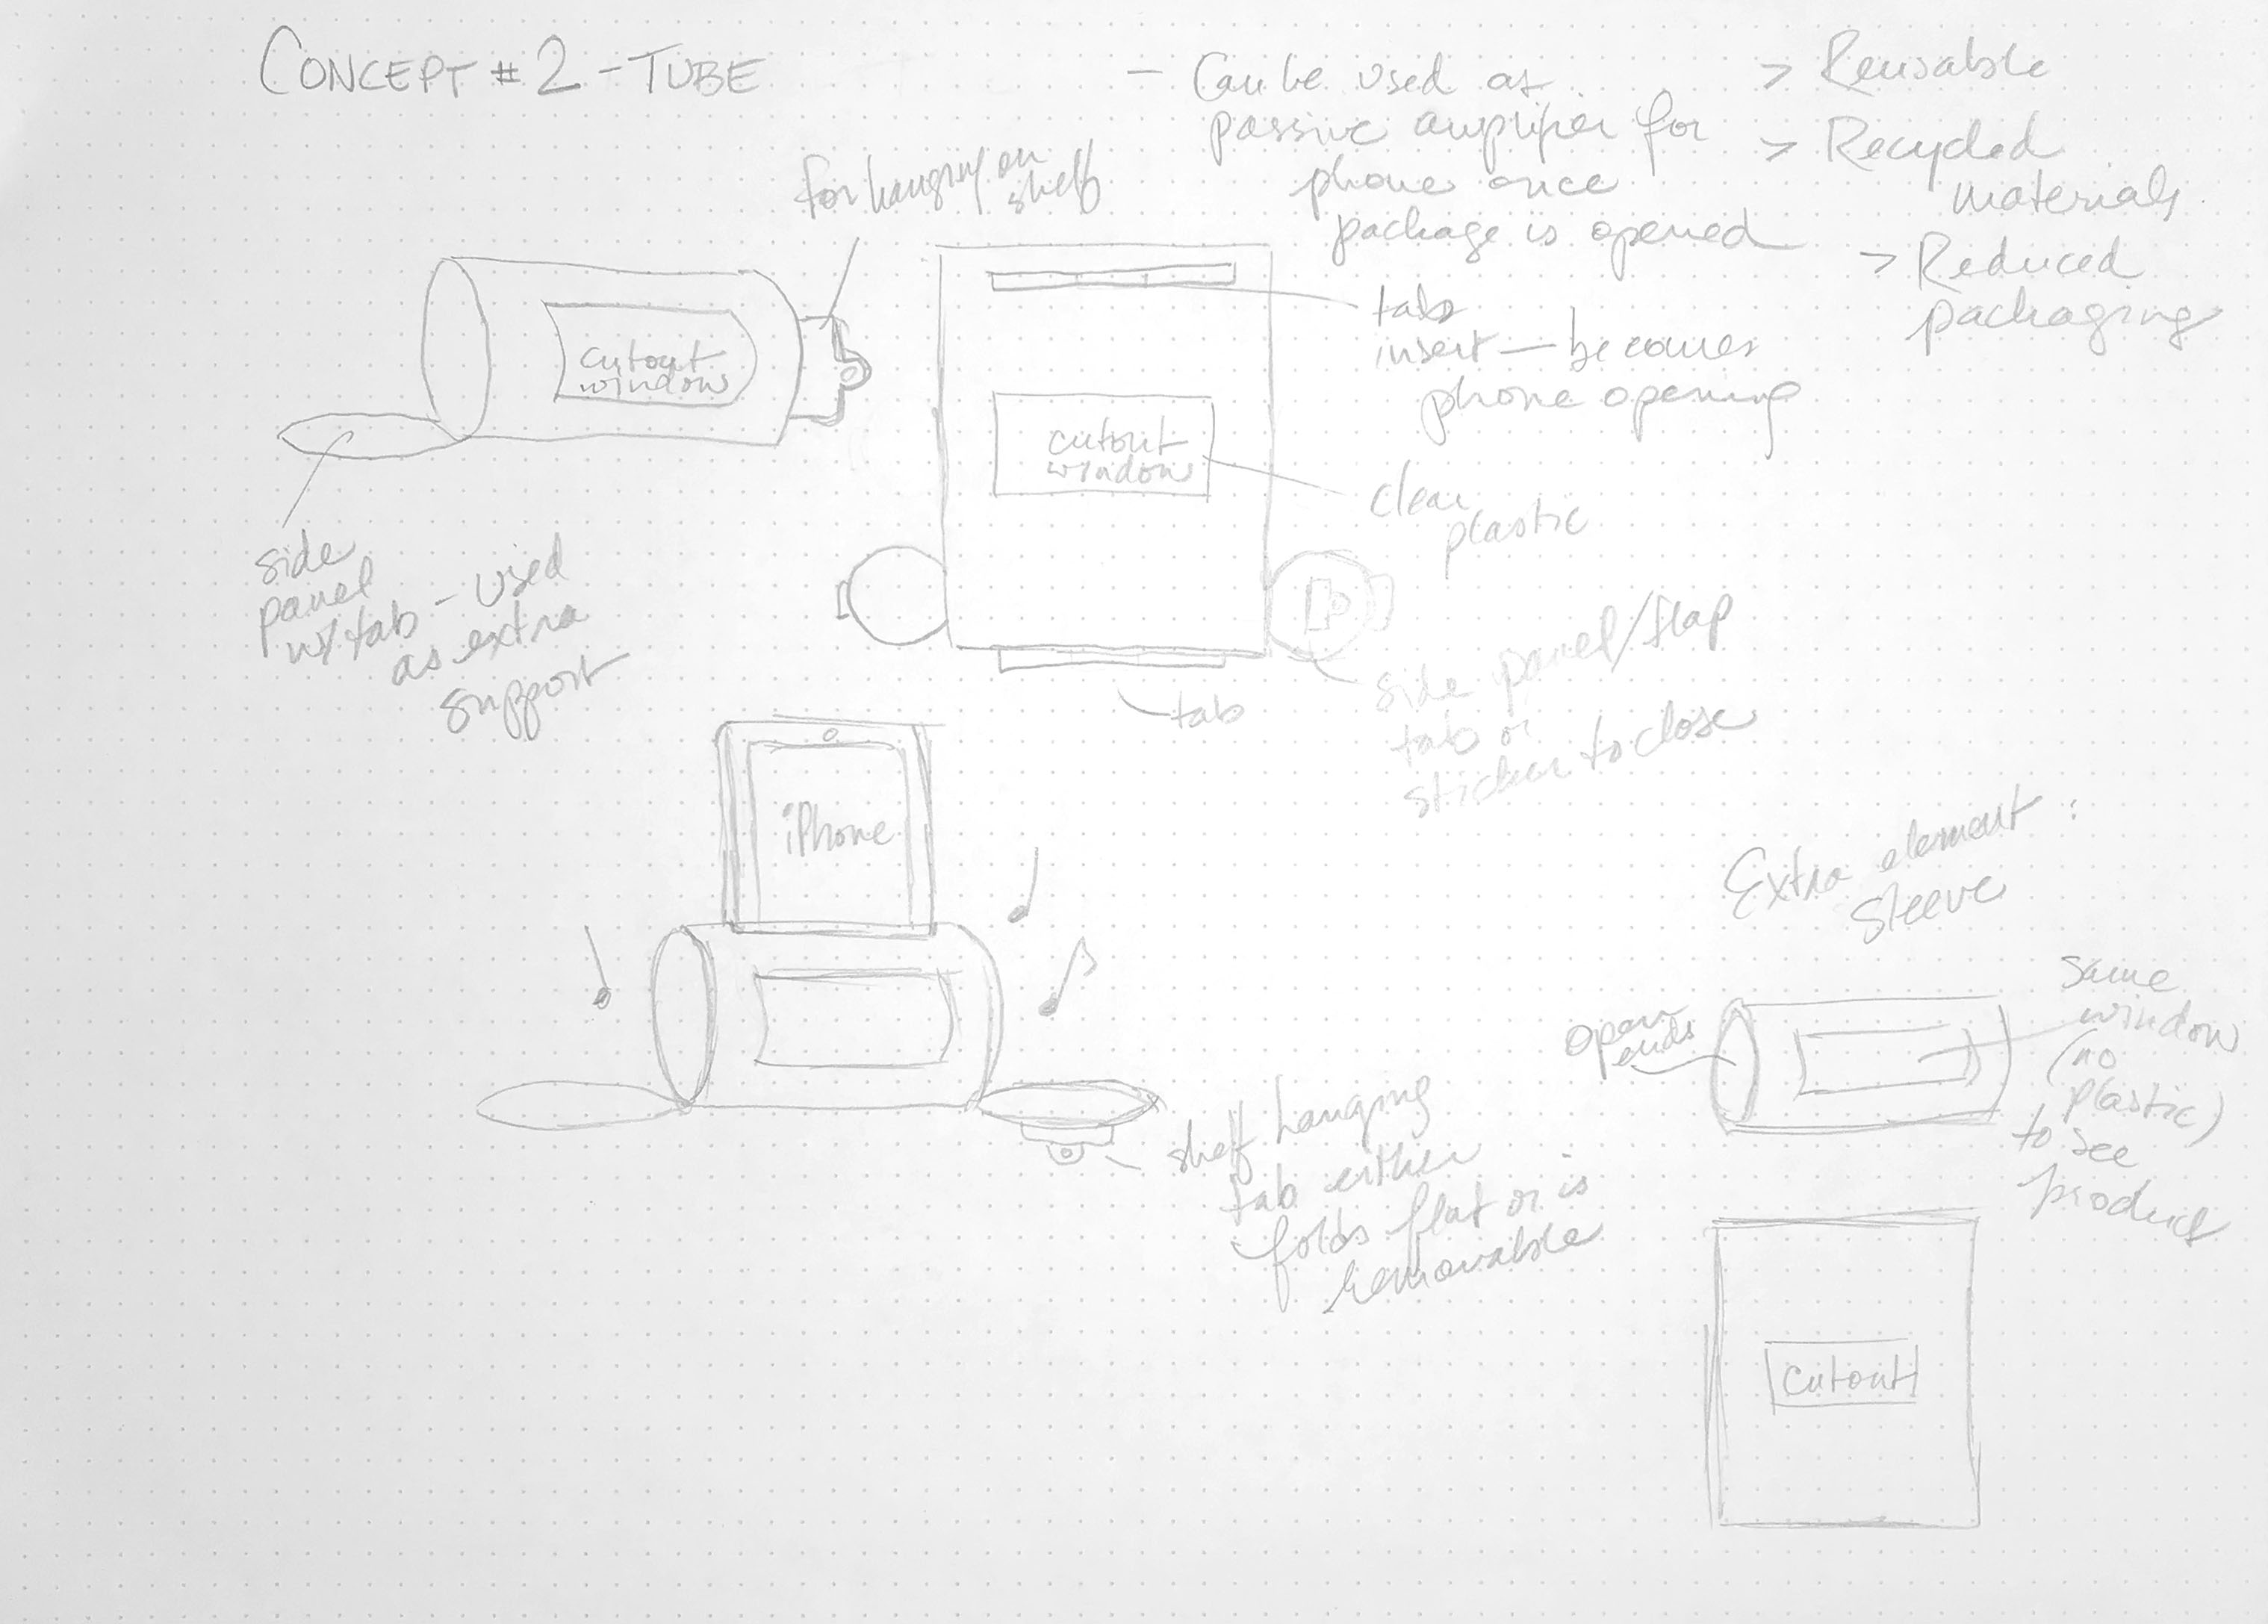 CONCEPT #2 - TUBE
- Can be used as
passive amplifier for
phone once
package is opened
> Reusable
> Recycled
materials
> Reduced
packaging
for hanging on
shelf
cutout
window
side
panel
w/ tab - used
as extra
support
tab
insert — becomes
phone opening
cutout
window
clear
plastic
side panel/flap
tab or
sticker to close
tab
iPhone
shelf hanging
tab either
folds flat or is
removable
Extra element:
sleeve
open
ends
same
window
(no
plastic)
to see
product
cutout